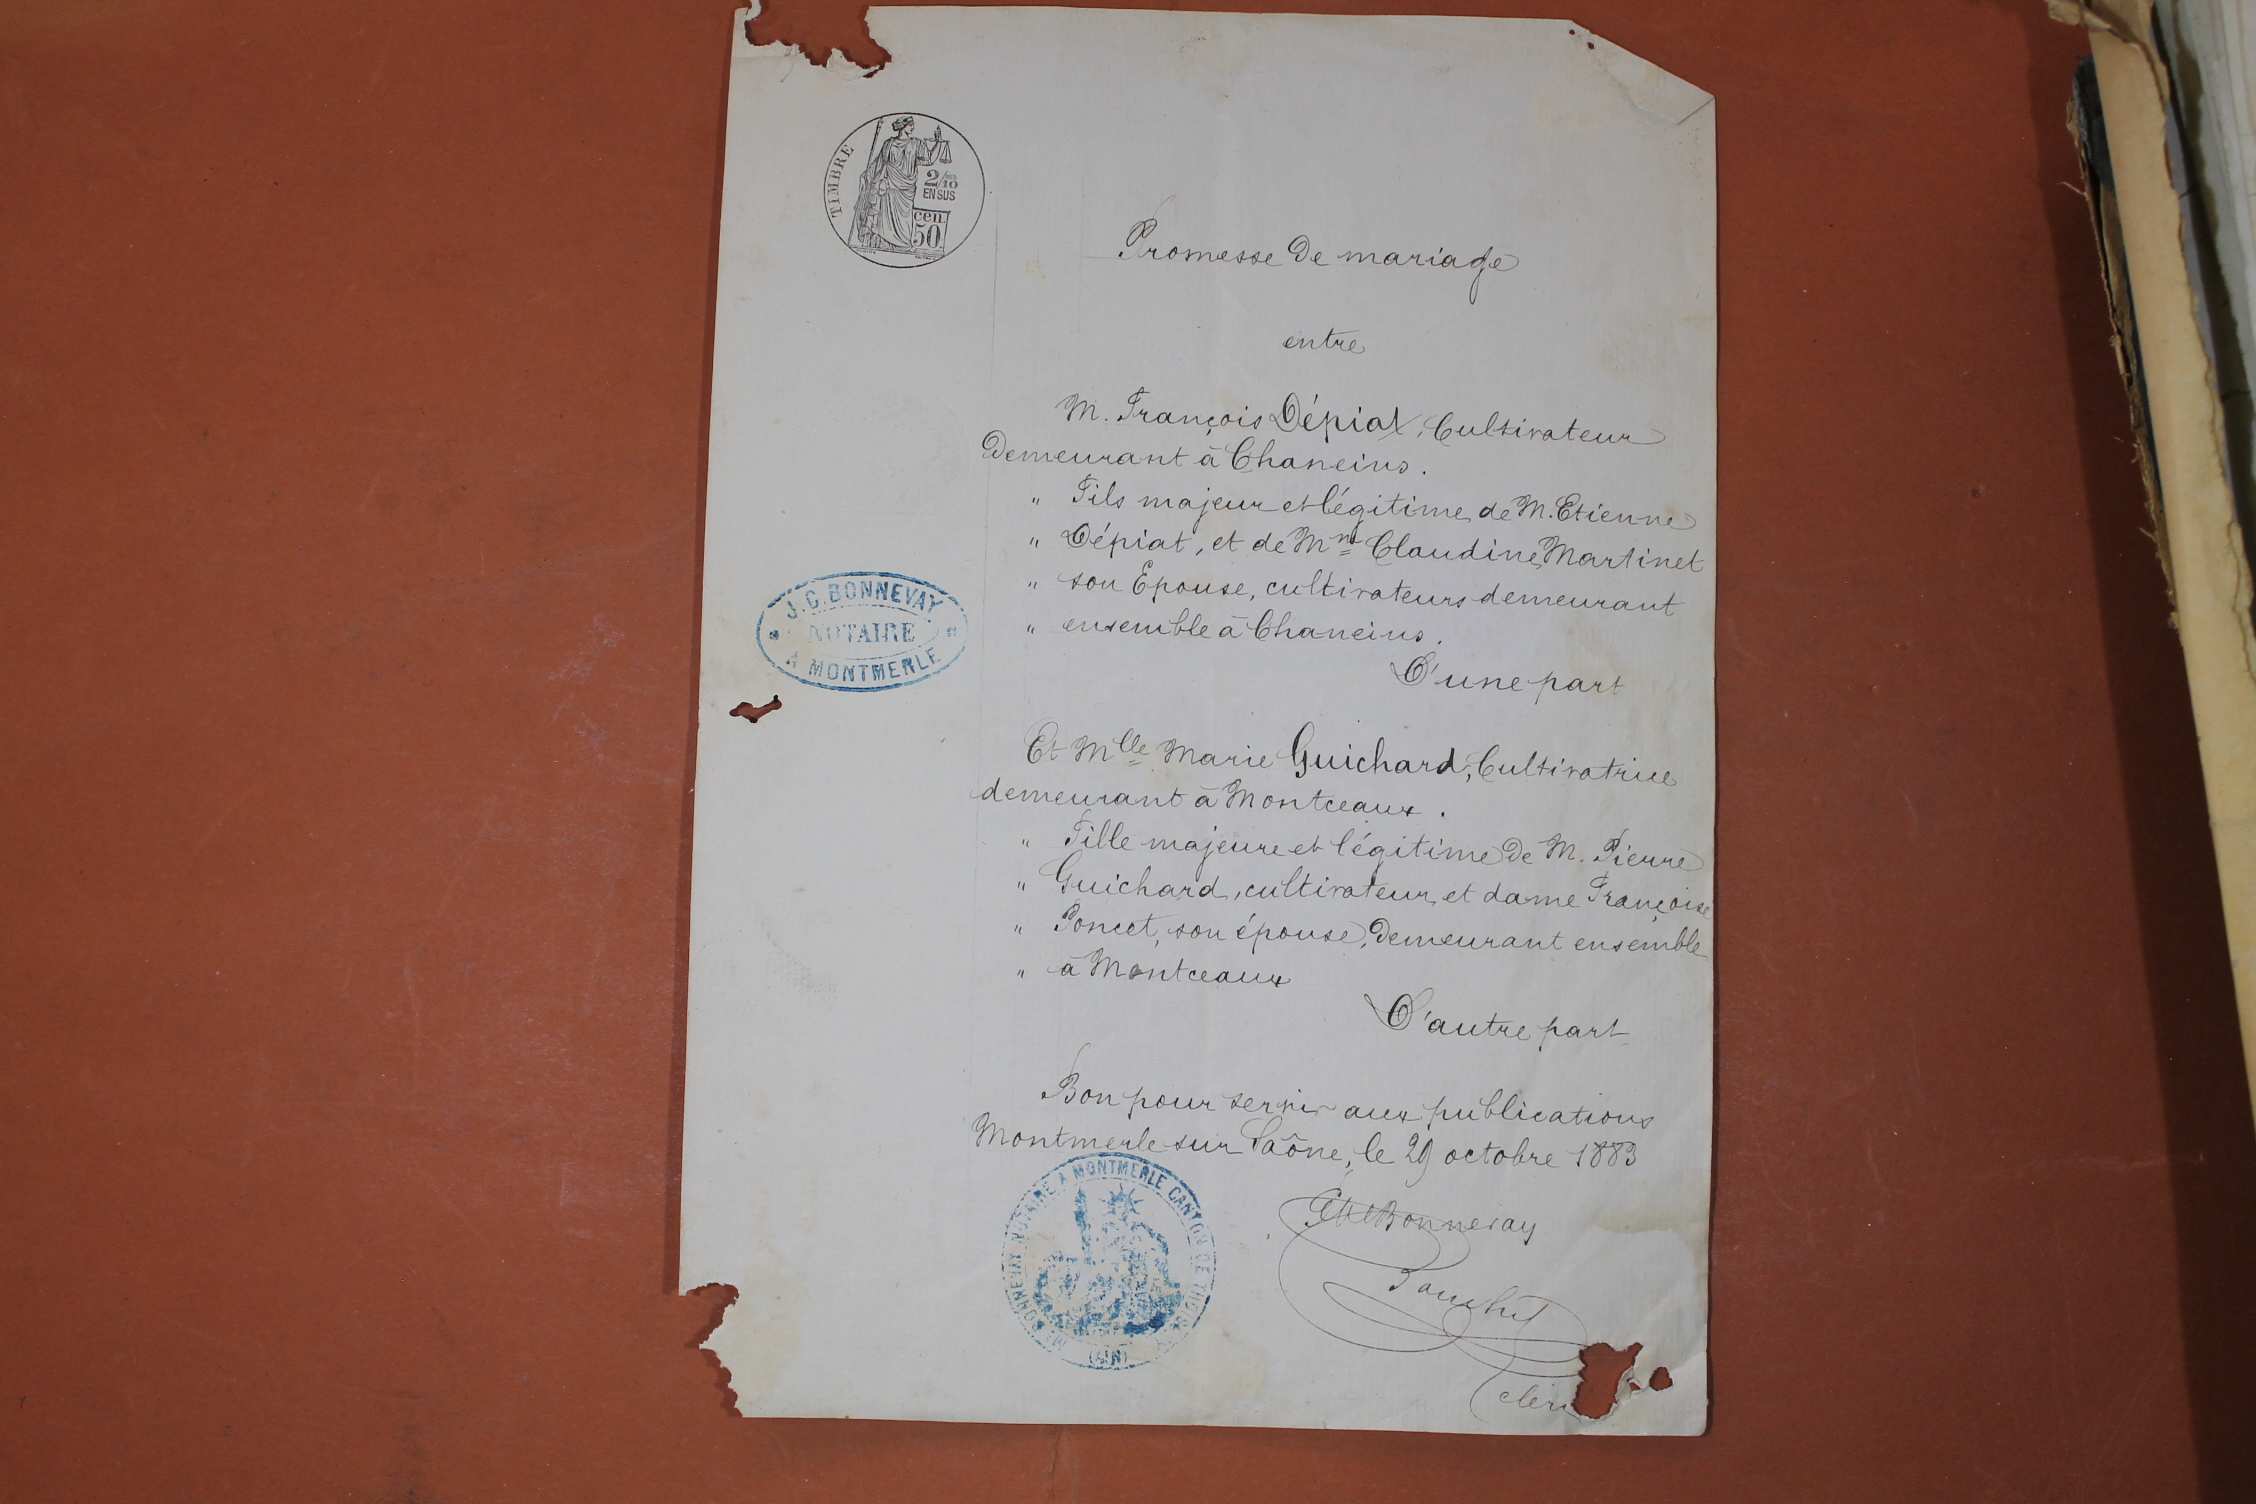 TIMBRE
2/10
EN SUS
cen.
50
Promesse de mariage
entre
M. François Dépiat, Cultivateur
demeurant à Chaneins.
" Fils majeur et légitime de M. Etienne
" Dépiat, et de Mme Claudine Martinet
" son Epouse, cultivateurs demeurant
" ensemble à Chaneins.
D'une part
J. C. BONNEVAY
NOTAIRE
A MONTMERLE
Et Mlle Marie Guichard, Cultivatrice
demeurant à Montceaux.
" Fille majeure et légitime de M. Pierre
" Guichard, cultivateur, et dame Françoise
" Poncet, son épouse, demeurant ensemble
" à Montceaux
D'autre part
Bon pour servir aux publications
Montmerle sur Saône, le 29 octobre 1883
Bonnevay
NOTAIRE A MONTMERLE CANTON DE
(AIN)